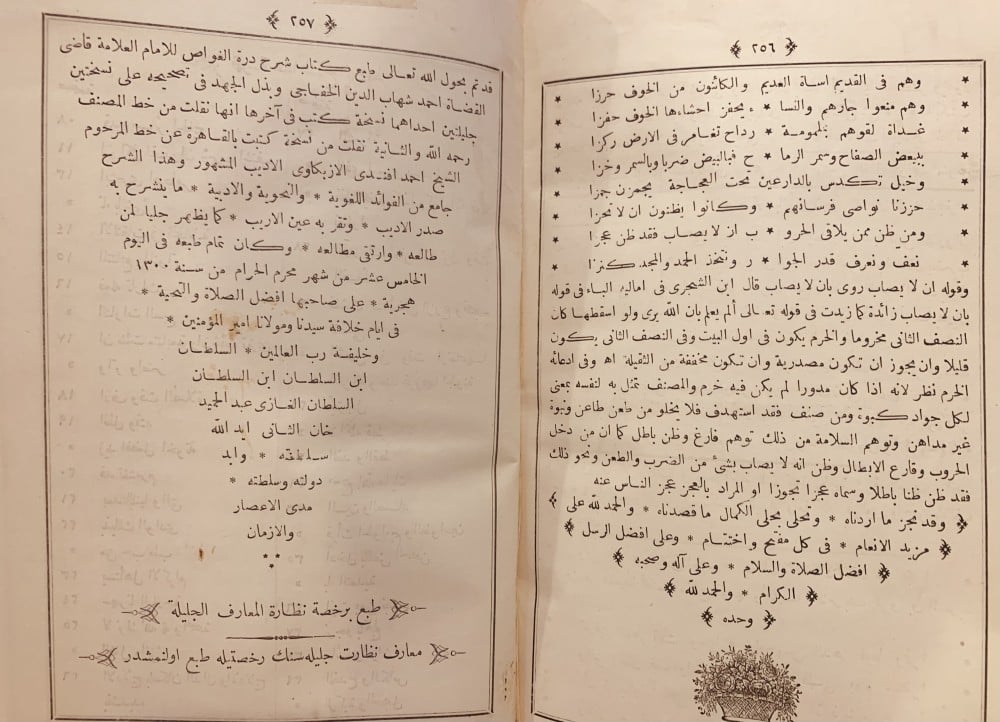 ٢٥٦
* وهم فى القديم اساة العديم والكائنون من الخوف حرزا *
* وهم منعوا جارهم والنسا * ء يحفز احشاءها الخوف حفزا
* غداة لقوهم بملمومة * رداح تغامر فى الارض ركزا
* ببعض الصفاح وسمر الرما * ح فبالبيض ضربا وبالسمر وخزا
* وخيل تكدس بالدارعين تحت العجاجة يجمزن جمزا *
* حززنا نواصى فرسانهم * وكانوا يظنون ان لا تحزا
* ومن ظن ممن يلاقى الحرو * ب ان لا يصاب فقد ظن عجزا *
* نعف ونعرف قدر الجوا * ر ونتخذ الحمد والمجد كنزا *
وقوله ان لا يصاب روى بان لا يصاب قال ابن الشجرى فى اماليه الباء فى قوله
بان لا يصاب زائدة كما زيدت فى قوله تعالى ألم يعلم بان الله يرى ولو اسقطها كان
النصف الثانى مخروما والخرم يكون فى اول البيت وفى النصف الثانى يكون
قليلا وان يجوز ان تكون مصدرية وان تكون مخففة من الثقيلة اه وفى ادعائه
الخرم نظر لانه اذا كان مدورا لم يكن فيه خرم والمصنف تمثل به لنفسه بمعنى
لكل جواد كبوة ومن صنف فقد استهدف فلا يخلو من طعن طاعن ونبوة
غير مداهن وتوهم السلامة من ذلك توهم فارغ وظن باطل كما ان من دخل
الحروب وقارع الابطال وظن انه لا يصاب بشئ من الضرب والطعن ونحو ذلك
فقد ظن ظنا باطلا وسماه عجزا تجوزا او المراد بالعجز عجز الناس عنه
وقد نجز ما اردناه * وتحلى بحلى الكمال ما قصدناه * والحمد لله على
مزيد الانعام * فى كل مفتح واختتام * وعلى افضل الرسل
افضل الصلاة والسلام * وعلى آله وصحبه
الكرام * والحمد لله
وحده
٢٥٧
قد تم بحول الله تعالى طبع كتاب شرح درة الغواص للامام العلامة قاضى
القضاة احمد شهاب الدين الخفاجى وبذل الجهد فى تصحيحه على نسختين
جليلتين احداهما نسخة كتب فى آخرها انها نقلت من خط المصنف
رحمه الله والثانية نقلت من نسخة كتبت بالقاهرة عن خط المرحوم
الشيخ احمد افندى الازبكاوى الاديب المشهور وهذا الشرح
جامع من الفوائد اللغوية * والنحوية والادبية * ما ينشرح به
صدر الاديب * وتقر به عين الاريب * كما يظهر جليا لمن
طالعه * وارتقى مطالعه * وكان تمام طبعه فى اليوم
الخامس عشر من شهر محرم الحرام من سنة ١٣٠٠
هجرية * على صاحبها افضل الصلاة والتحية *
فى ايام خلافة سيدنا ومولانا امير المؤمنين *
وخليفة رب العالمين * السلطان
ابن السلطان ابن السلطان
السلطان الغازى عبد الحميد
خان الثانى ايد الله
سلطنته * وابد
دولته وسلطته *
مدى الاعصار
والازمان
طبع برخصة نظارة المعارف الجليلة
معارف نظارت جليله سنك رخصتيله طبع اولنمشدر